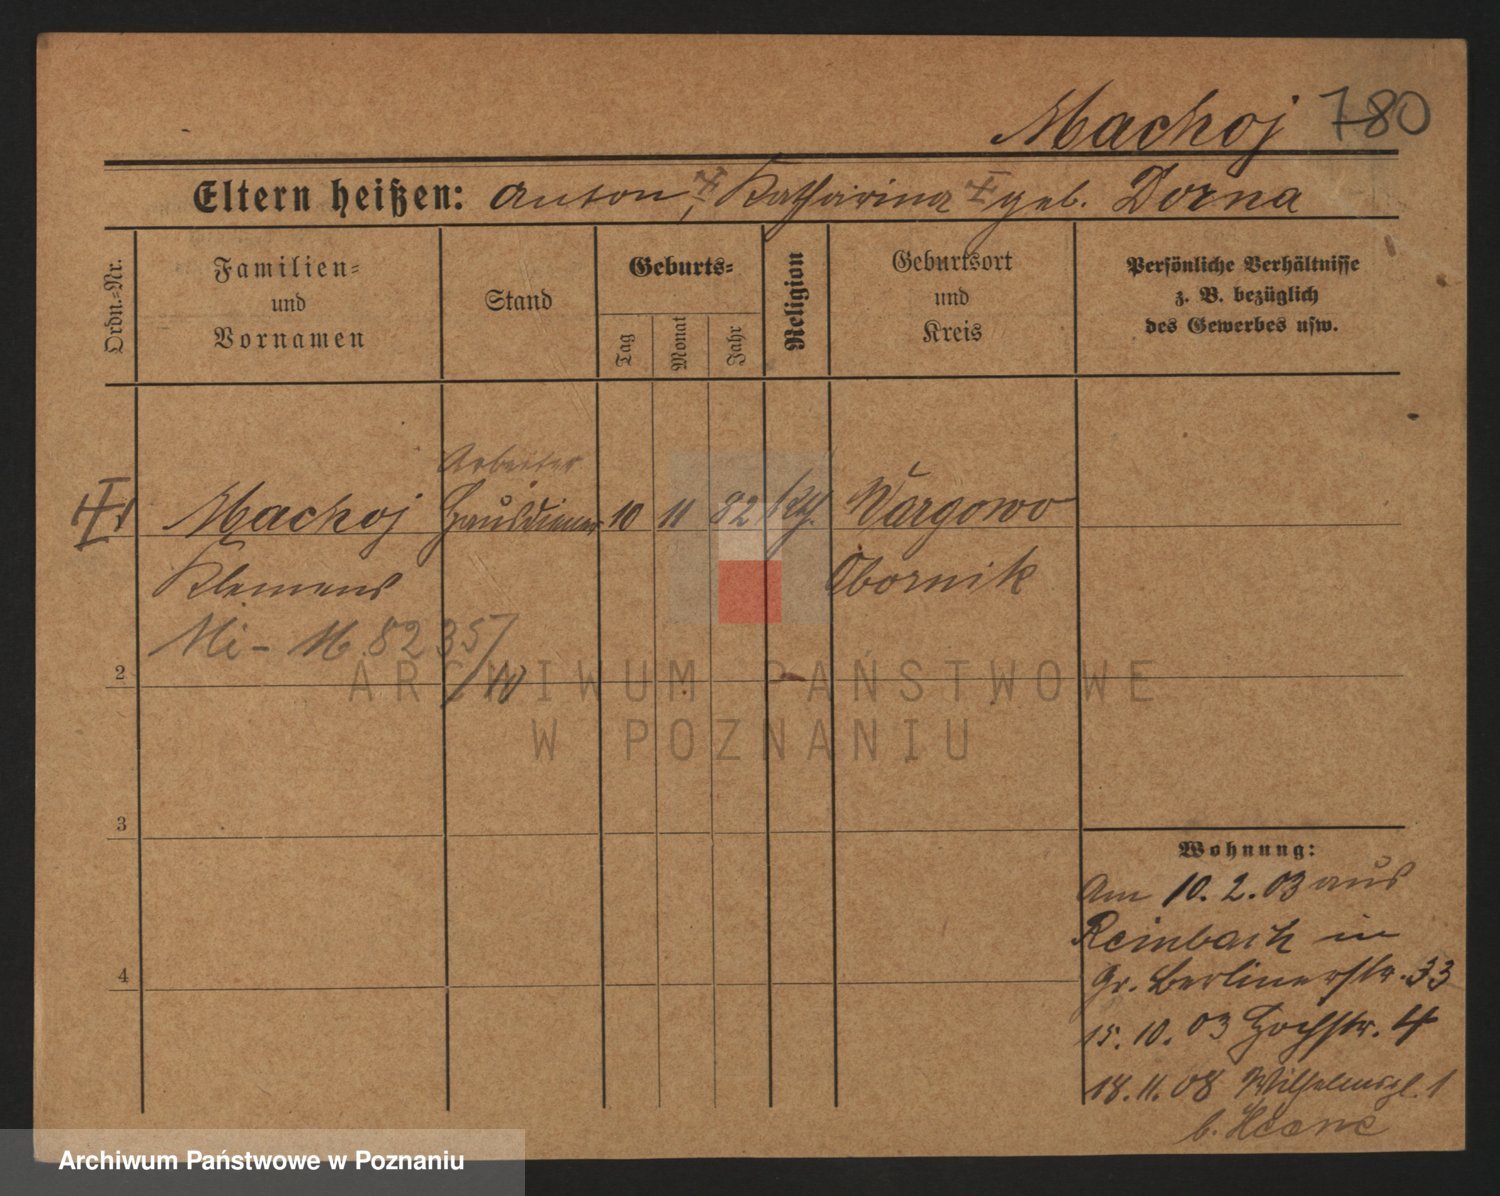 Machoj 780
Eltern heißen: Anton, Katharina geb. Dorna
Ordn.=Nr.
Familien=
und
Vornamen
Stand
Geburts=
Tag
Monat
Jahr
Religion
Geburtsort
und
Kreis
Persönliche Verhältnisse
z. B. bezüglich
des Gewerbes usw.
Arbeiter
Machoj Hausdiener 10 11 82 kth. Wargowo
Klemens Obornik
Mi - M 8235/10
2
3
4
Wohnung:
Am 10. 2. 03 aus
Reinbach in
Gr. Berlinerstr. 33
15. 10. 03 Hochstr. 4
18. 11. 08 Wilhelmspl. 1
b.
ARCHIWUM PAŃSTWOWE
W POZNANIU
Archiwum Państwowe w Poznaniu